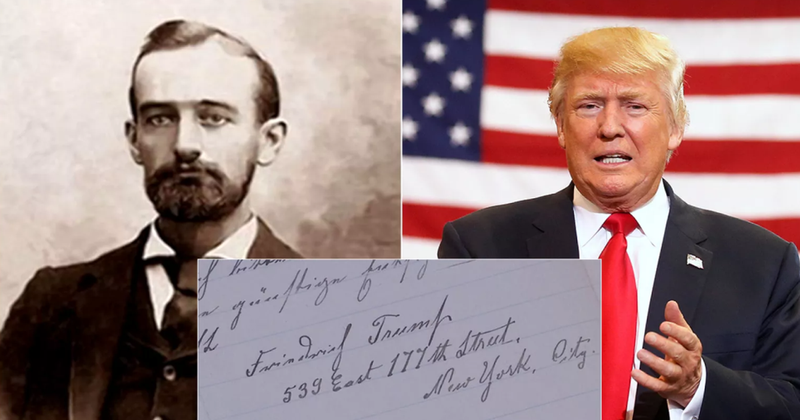 günstige
Friedrich Trump
539 East 177th Street.
New York. City.